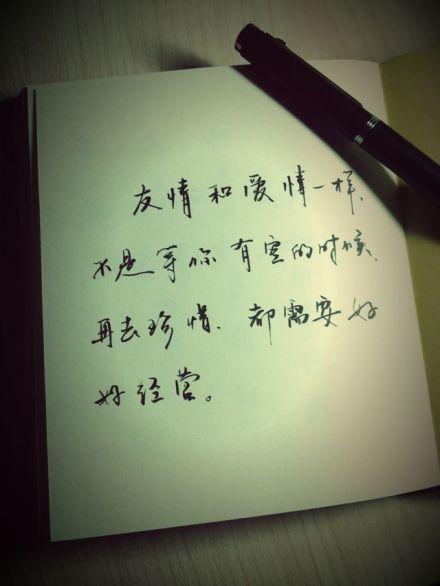 友情和爱情一样,
不是等你有空的时候,
再去珍惜. 都需要好
好经营。